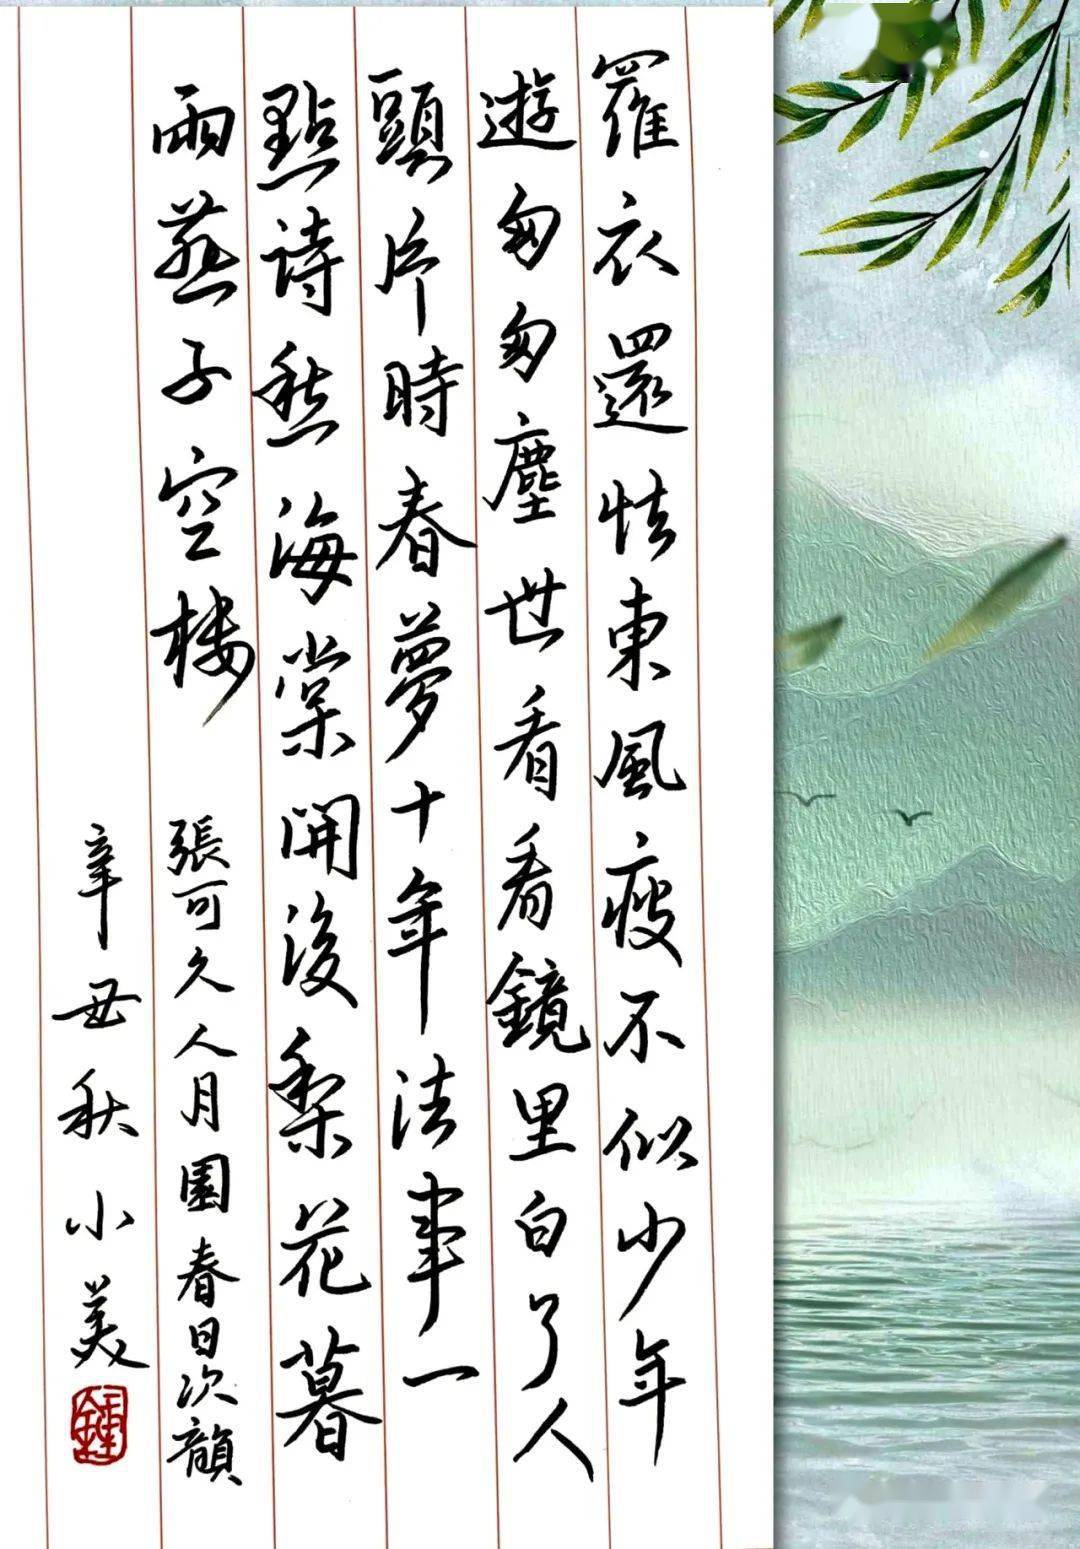 羅衣還怯東風瘦不似少年
遊匆匆塵世看看鏡里白了人
頭片時春夢十年法事一
點詩愁海棠開後梨花暮
雨燕子空楼
張可久人月圓春日次韻
辛丑秋小美
鍾